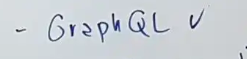 - GraphQL ✓